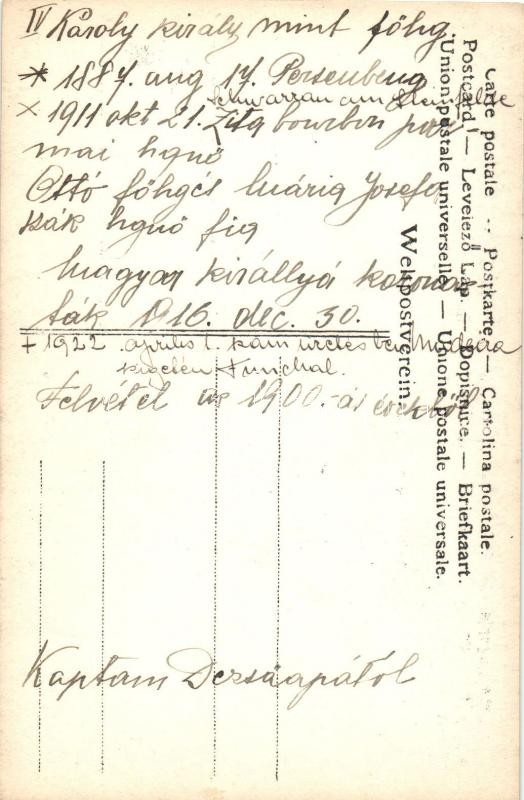 IV Karoly király mint főhg.
* 1887. aug 17. Persenbeug
Schwarzau am Steinfelde
× 1911 okt 21. Zita bourbon par
mai hgnő
Ottó főhg és Mária Josefa
szák hgnő fia
Magyar királlyá koroná
ták 1916. dec. 30.
+ 1922 április 1. száműzetésben Madeira
szigetén Funchal.
Felvétel az 1900.-ás évekből
Kaptam Dezsőapától
Carte postale -- Postkarte — Cartolina postale.
Postcard — Levelező Lap — Dopisnice. — Briefkaart.
Union postale universelle — Unione postale universale.
Weltpostverein.